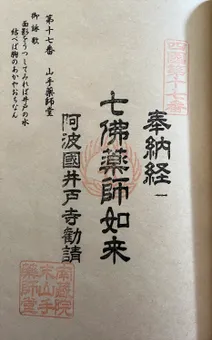 四國第十七番
奉納経 一
七佛薬師如来
阿波國井戸寺勧請
第十七番 山手薬師堂
御詠歌
面影をうつしてみれば井戸の水
結べば胸のあかやおちなん
南蔵院
山手
薬師堂